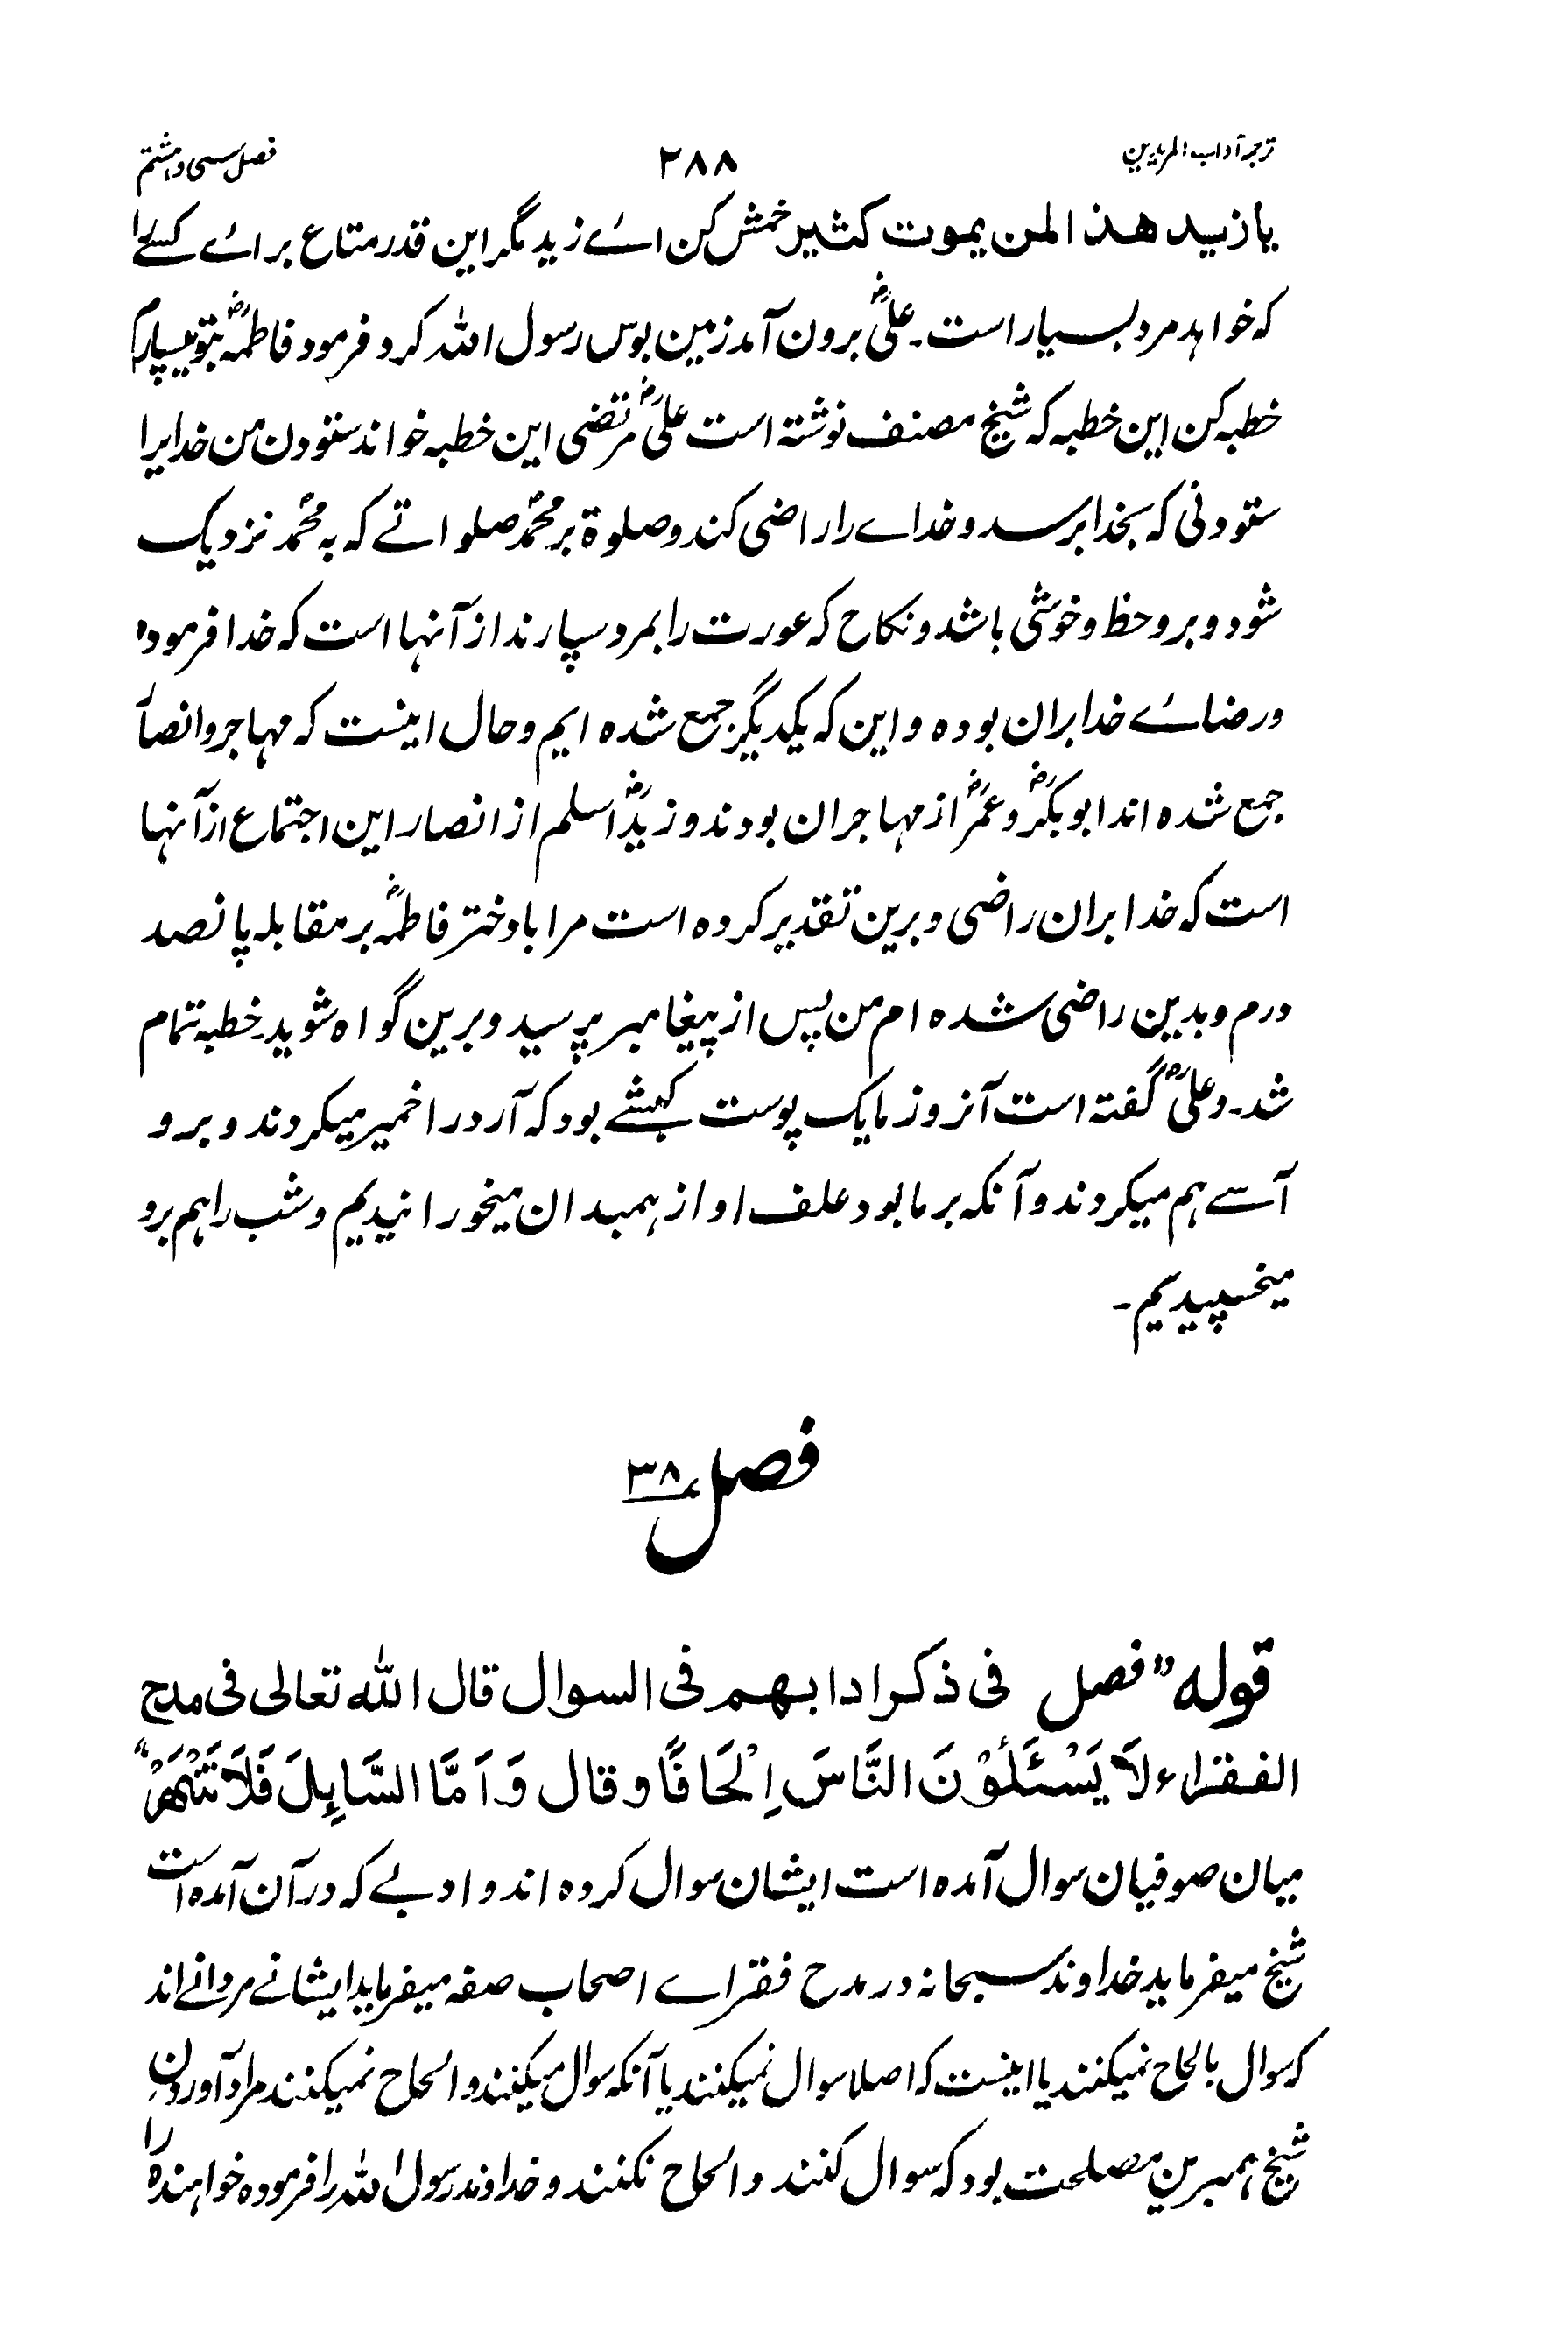 ترجمہ آداب المریدین ۲۸۸ فصل سی و ہشتم
یا زید هذا لمن یموت کثیر خمش کن اے زید مگر این قدر متاع براے کسے را
کہ خواہد مرد بسیار است۔ علیؓ برون آمد زمین بوس رسول اللہ کرد فرمود فاطمہؓ بتو میسپارم
خطبہ کن این خطبہ کہ شیخ مصنف نوشتہ است علیؓ مرتضی این خطبہ خواند ستودن من خدایرا
ستودنی کہ بخدا برسد و خداے را راضی کند و صلوة بر محمدؐ صلواتے کہ بہ محمدؐ نزدیک
شود و برو حظ و خوشی باشد و نکاح کہ عورت را بمرد سپارند از آنہا است کہ خدا فرمودہ
و رضاے خدا بران بودہ و این کہ یکدیگر جمع شدہ ایم و حال اینست کہ مہاجر و انصار
جمع شدہ اند ابو بکرؓ و عمرؓ از مہاجران بودند و زیدؓ اسلم از انصار این اجتماع از آنہا
است کہ خدا بران راضی و برین تقدیر کردہ است مرا با دختر فاطمہؓ بر مقابلہ پانصد
درم و بدین راضی شدہ ام من پس از پیغامبر پرسید و برین گواہ شوید۔ خطبہ تمام
شد۔ و علیؓ گفتہ است آنروز ما یک پوست کبشے بود کہ آرد را خمیر میکردند و برو
آسے ہم میکردند و آنکہ بر ما بود علف او از ہمبدان میخورانیدیم و شب را ہم برو
میخسپیدیم۔
فصل ۳۸
قوله "فصل فی ذکر ادابهم فی السوال قال الله تعالی فی مدح
الفقراء لَا یَسْئَلُوْنَ النَّاسَ اِلْحَافًا وقال وَاَمَّا السَّایِلَ فَلَا تَنْهَرْ"
میان صوفیان سوال آمدہ است ایشان سوال کردہ اند و ادبے کہ در آن آمدہ است
شیخ میفرماید خداوند سبحانہ در مدح فقراے اصحاب صفہ میفرماید ایشانے مردانے اند
کہ سوال بالحاح نمیکنند یا اینست کہ اصلا سوال نمیکنند یا آنکہ سوال میکنند و الحاح نمیکنند مراد آوردن
شیخ ہمبرین مصلحت بود کہ سوال کنند و الحاح نکنند و خداوند رسول اللہ را فرمودہ خواہندہ را